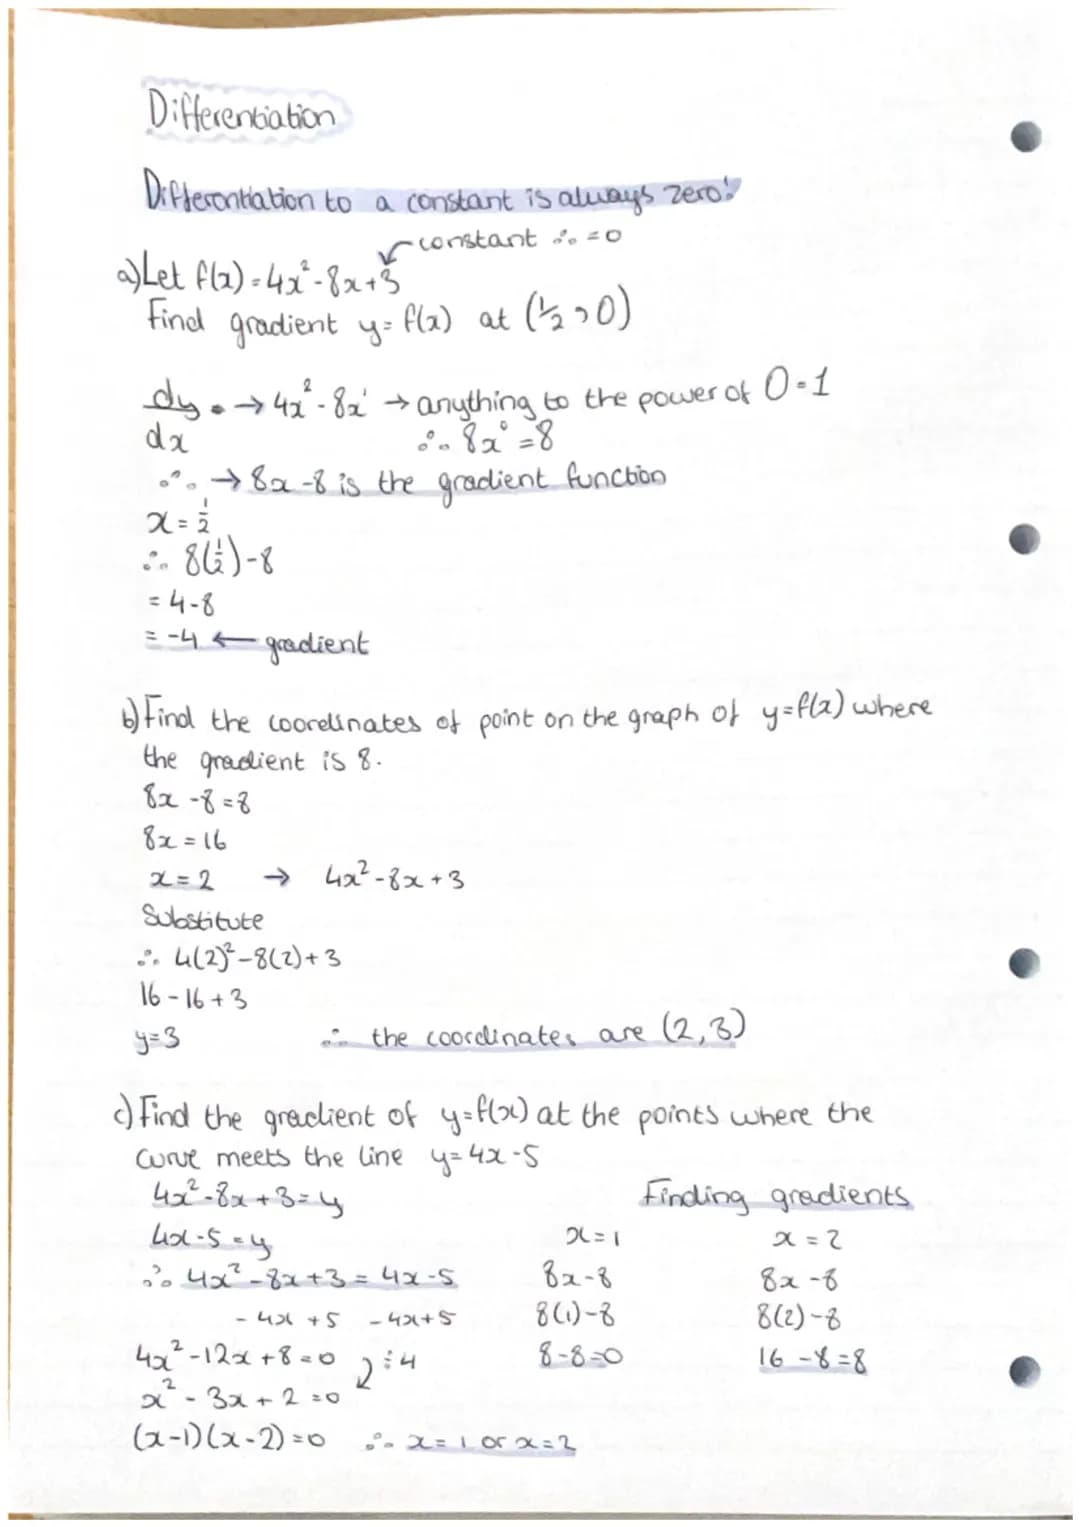 Differentiation
Differentiation to a constant is always zero!
constant ∴ =0
a) Let f(x) = 4x² - 8x + 3
Find gradient y = f(x) at (½, 0)
dy/dx → 4x² - 8x¹ → anything to the power of 0 = 1
∴ 8x⁰ = 8
∴ → 8x - 8 is the gradient function
x = ½
∴ 8(½) - 8
= 4 - 8
= -4 ← gradient
b) Find the coordinates of point on the graph of y = f(x) where
the gradient is 8.
8x - 8 = 8
8x = 16
x = 2 → 4x² - 8x + 3
Substitute
∴ 4(2)² - 8(2) + 3
16 - 16 + 3
y = 3 ∴ the coordinates are (2, 3)
c) Find the gradient of y = f(x) at the points where the
curve meets the line y = 4x - 5
4x² - 8x + 3 = y
4x - 5 = y
∴ 4x² - 8x + 3 = 4x - 5
- 4x + 5 - 4x + 5
4x² - 12x + 8 = 0 ÷ 4
x² - 3x + 2 = 0
(x - 1)(x - 2) = 0 ∴ x = 1 or x = 2
Finding gradients
x = 1
8x - 8
8(1) - 8
8 - 8 = 0
x = 2
8x - 8
8(2) - 8
16 - 8 = 8